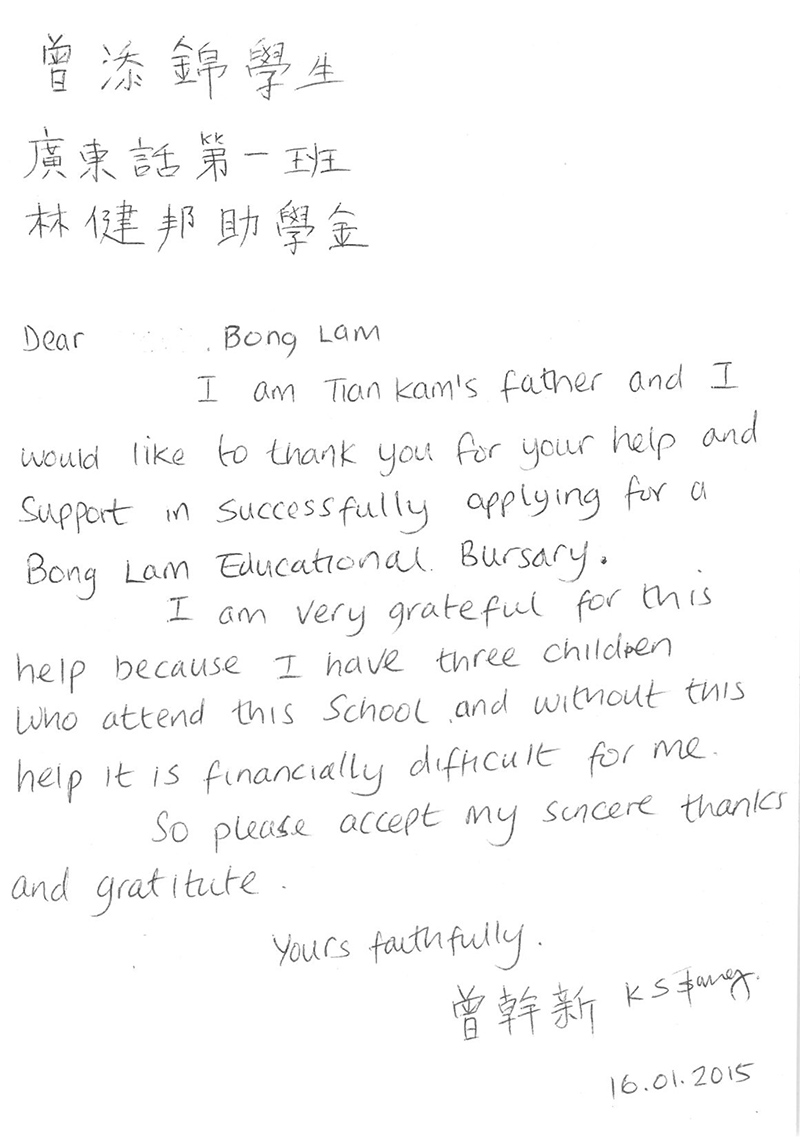 曾添錦學生
廣東話第一班
林健邦助學金
Dear . Bong Lam
I am Tian Kam's father and I
would like to thank you for your help and
support in successfully applying for a
Bong Lam Educational Bursary.
I am very grateful for this
help because I have three children
who attend this School and without this
help it is financially difficult for me.
So please accept my sincere thanks
and gratitute.
Yours faithfully.
曾幹新 K S
16.01.2015